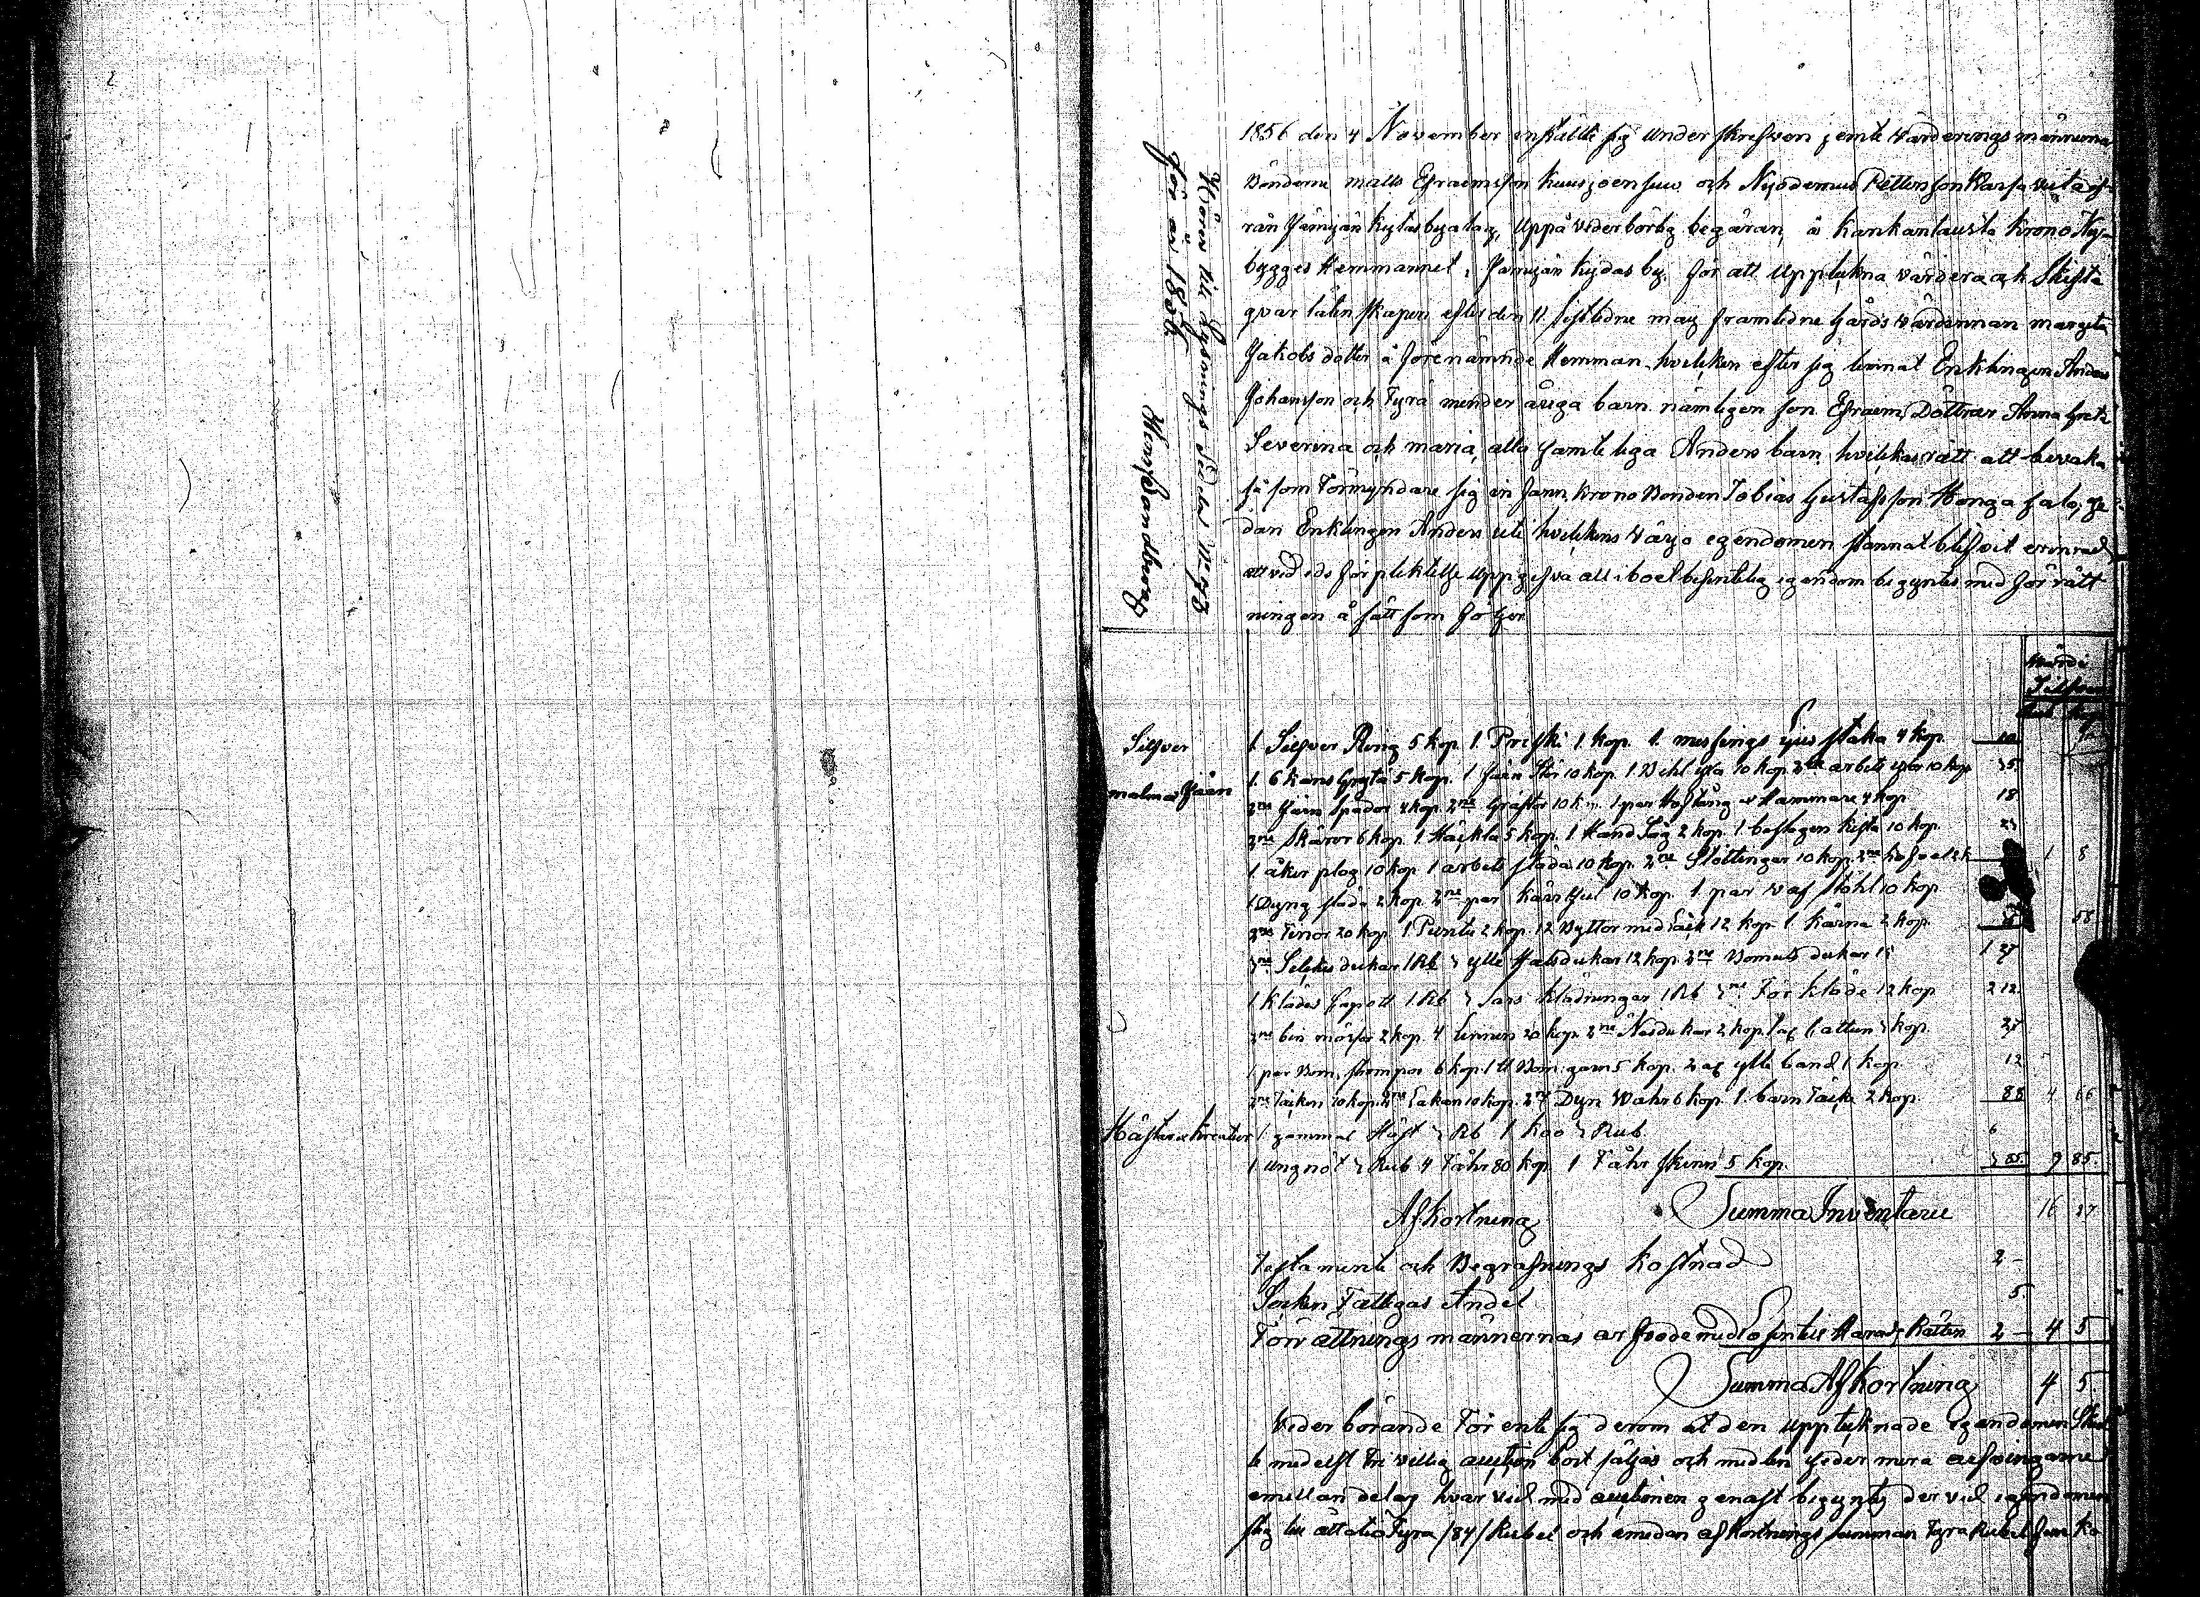 1856 den 4 November instälte sig underskrefven jemte Värderings männerna
Bönderne matts Efraimsson Kuusjoensuu och Nyodemus Pettersson Karsavuita f-
rån Jämijän kylas byalag, uppå vederbörlig begäran, å Kankantausta Krono Ny-
bygges Hemmanet i Jämijän kydas by för att Uppteckna värdera och Skifta
qvar låtenskapen efter den 11 sistledne maij framledne Gårds värdinnan margeta
Jakobs dotter å förenämnde Hemman hvilcken efter sig lemnat Enklingen Anders
Johansson och Fyra minder åriga barn nämligen son Efraim, Döttrar Anna Greta
Severina och maria, alla samteliga Anders barn hvilckas rätt att bevaka
så som Förmyndare sig in fann Krono Bonden Tobias Gustafsson Honga salo, se-
dan Enklingen Anders uti hvilckens värjo egendomen stannat blifvit erinrad
att vid eds förplicktelse uppgifva all i boet befintelig egendom begyntes med förrätt
ningen å sätt som följer
Hörer till Lysnings Södol N:o 73
för år 1856
Wärde
Silfver
Rub kop
Silfver 1 Silfver Ring 5 kop. 1 Preski 1 kop. 1 messings ljus staka 4 kop. 10
1 6 kans Gryta 5 kop. 1 Järn Stör 10 kop. 1 Bihl yxa 10 kop. 2ne arbets yxor 10 kop 35
malm o Järn 2ne Järn Spador 4 kop. 2ne Gräftor 10 k. 1 par Hoftång o Hammare 4 kop 18
3ne Skäror 6 kop. 1 Häckla 5 kop. 1 Hand Såg 2 kop. 1 beslagen kista 10 kop. 23
1 åker plog 10 kop 1 arbets släda 10 kop. 2ne Stöttingar 10 kop. 1 8
1 Dyng släda 2 kop. 2ne par Kärrhjul 10 kop. 1 par vaf stohl 10 kop
3ne Tinor 20 kop. 1 Puntu 2 kop. 12 Byttor med läck 12 kop 1 kärna 2 kop. 58
3ne Silckes dukar 1 Rb 3 ylle Halsdukar 12 kop 3ne Bomuls dukar 15 1 27
1 klädes Capott 1 Rb 3 Sars klädningar 1 Rb 3ne För kläde 12 kop 2 12
2ne bin mössor 2 kop. 4 linnen 20 kop 2ne Näsdukar 2 kop. 1 af Cattun 3 kop. 27
1 par Bom. strumpor 6 kop. 1 ll Bom. garn 5 kop. 2 af ylle band 1 kop. 12
2ne Täcken 70 kop. 2ne Lakan 10 kop. 2ne Dyn Wahr 6 kop. 1 barn Täcke 2 kop. 88 4 66
Hästar o Kreatur 1 gammal Häst 3 Rb 1 koo 3 Rub 6
1 ungnöt 3 Rub 4 Fåhr 80 kop 1 Fåhr skinn 5 kop. 3 85 9 85.
Summa Inventarie 16 27
Afkortning
Testamente och Begrafnings kostnad 2 -
Socken Fattigas Andel 5
Förrättnings männernas arfvode med Losentill Härads Rätten 2 - 4 5
Summa Afkortning 4 5.
Vederbörande För ente sig derom at den upptecknade egendomen Skul
le medelst fri villig auction bort säljas och medlen sedermera arfvingarne
emillan delas hvar vid med auctionen genast begyntes der vid egendomen
steg till åttatio Fyra /84/ Rubel och emedan afkortnings summan Fyra Rubel fem ko